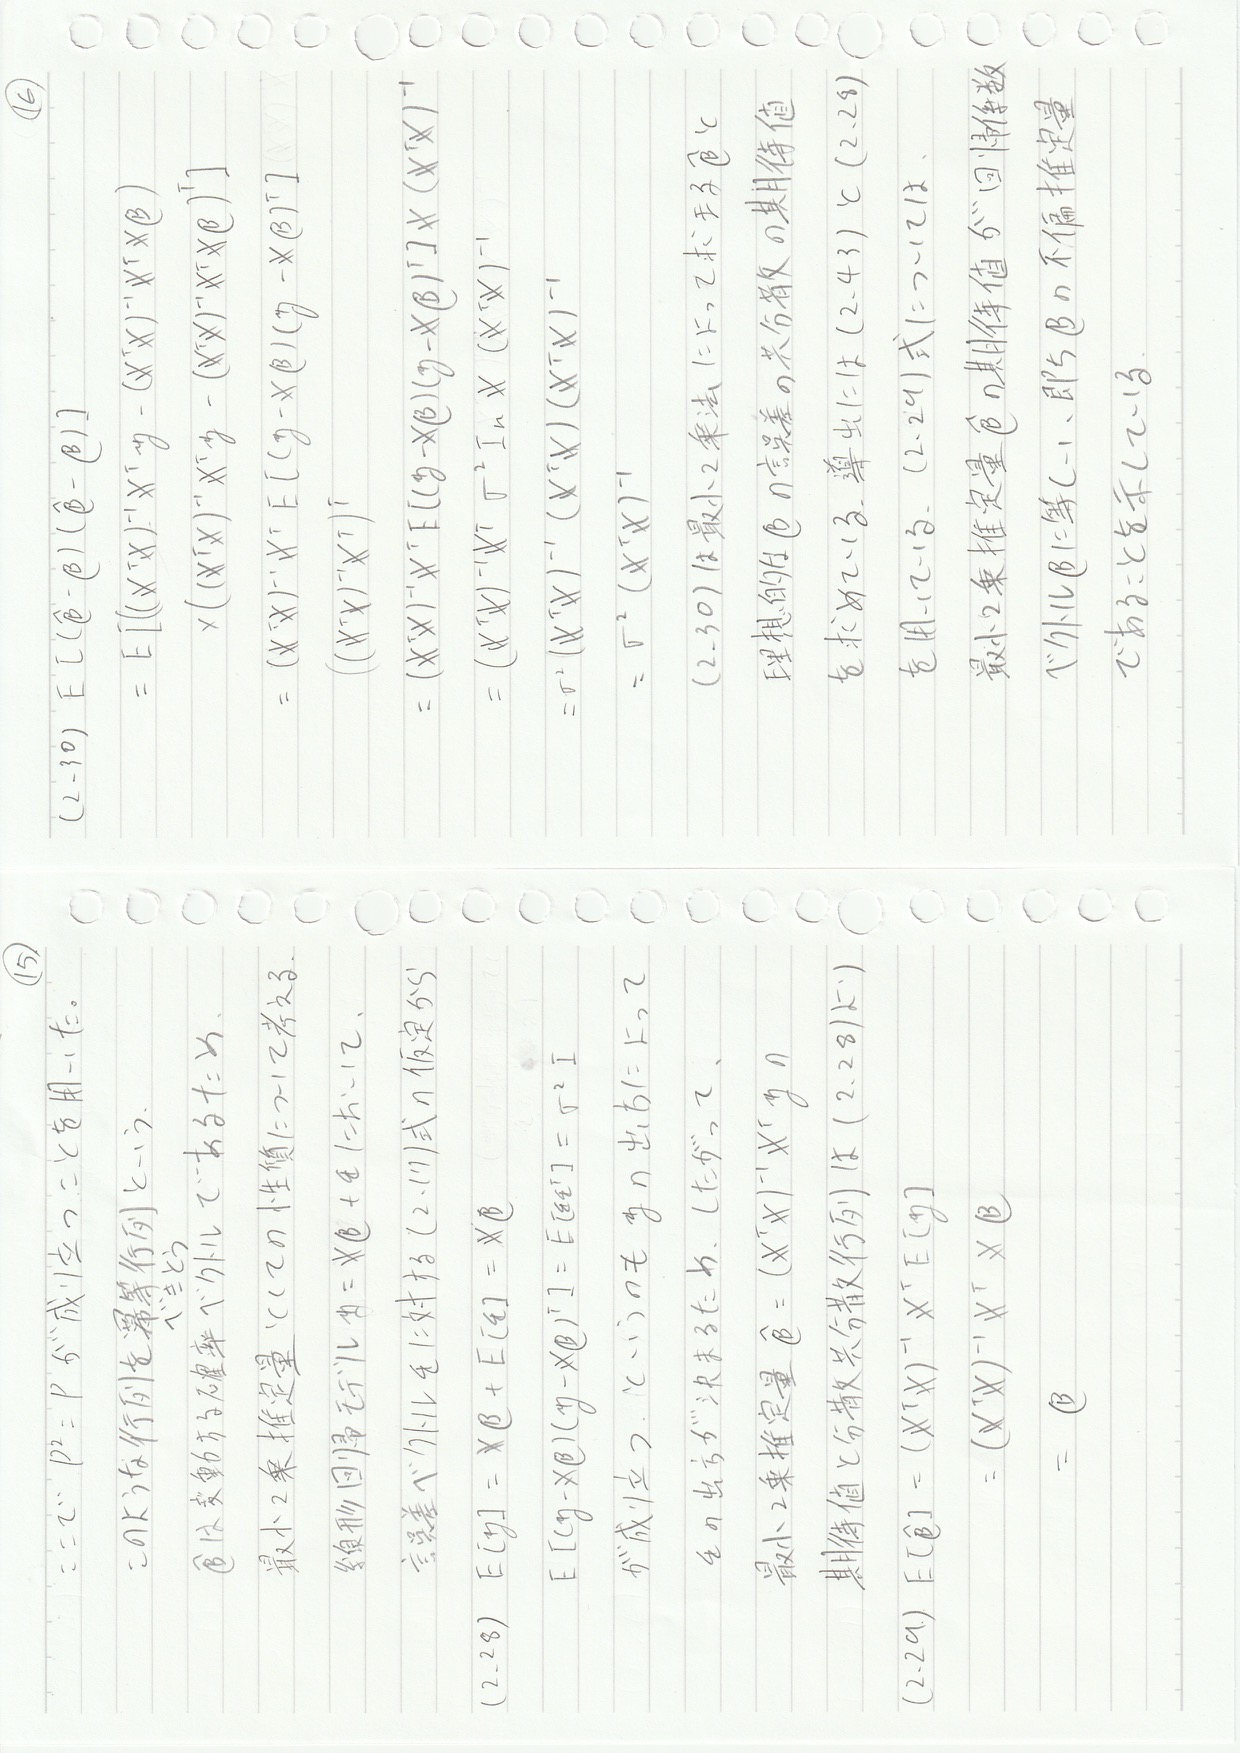 ⑮
ここで P²=P が成り立つことを用いた。
このような行列を冪等行列という.
べきとう
β̂は変動する確率ベクトルであるため、
最小2乗推定量としての性質について考える.
線形回帰モデル y = Xβ + ε において、
誤差ベクトル ε に対する (2.17)式の仮定から
(2.28) E[y] = Xβ + E[ε] = Xβ
E[(y-Xβ)(y-Xβ)ᵀ] = E[εεᵀ] = σ² I
が成り立つ. というのも y の出方によって
ε の出方が決まるため. したがって、
最小2乗推定量 β̂ = (XᵀX)⁻¹ Xᵀ y の
期待値と分散共分散行列は (2.28)より
(2.29) E[β̂] = (XᵀX)⁻¹ Xᵀ E[y]
= (XᵀX)⁻¹ Xᵀ X β
= β
⑯
(2.30) E[(β̂-β)(β̂-β)]
= E[((XᵀX)⁻¹Xᵀy - (XᵀX)⁻¹XᵀXβ)
×((XᵀX)⁻¹Xᵀy - (XᵀX)⁻¹XᵀXβ)ᵀ]
= (XᵀX)⁻¹Xᵀ E[(y-Xβ)(y-Xβ)ᵀ]
((XᵀX)⁻¹Xᵀ)ᵀ
= (XᵀX)⁻¹XᵀE[(y-Xβ)(y-Xβ)ᵀ]X (XᵀX)⁻¹
= (XᵀX)⁻¹Xᵀ σ² In X (XᵀX)⁻¹
= σ²(XᵀX)⁻¹ (XᵀX)(XᵀX)⁻¹
= σ² (XᵀX)⁻¹
(2.30)は最小2乗法によって求まる β̂ と
理想的な β の誤差の共分散の期待値
を求めている. 導出には (2.43) と (2.28)
を用いている. (2.29)式については、
最小2乗推定量 β̂ の期待値が回帰係数
ベクトル β に等しい、即ち β の不偏推定量
であることを示している.